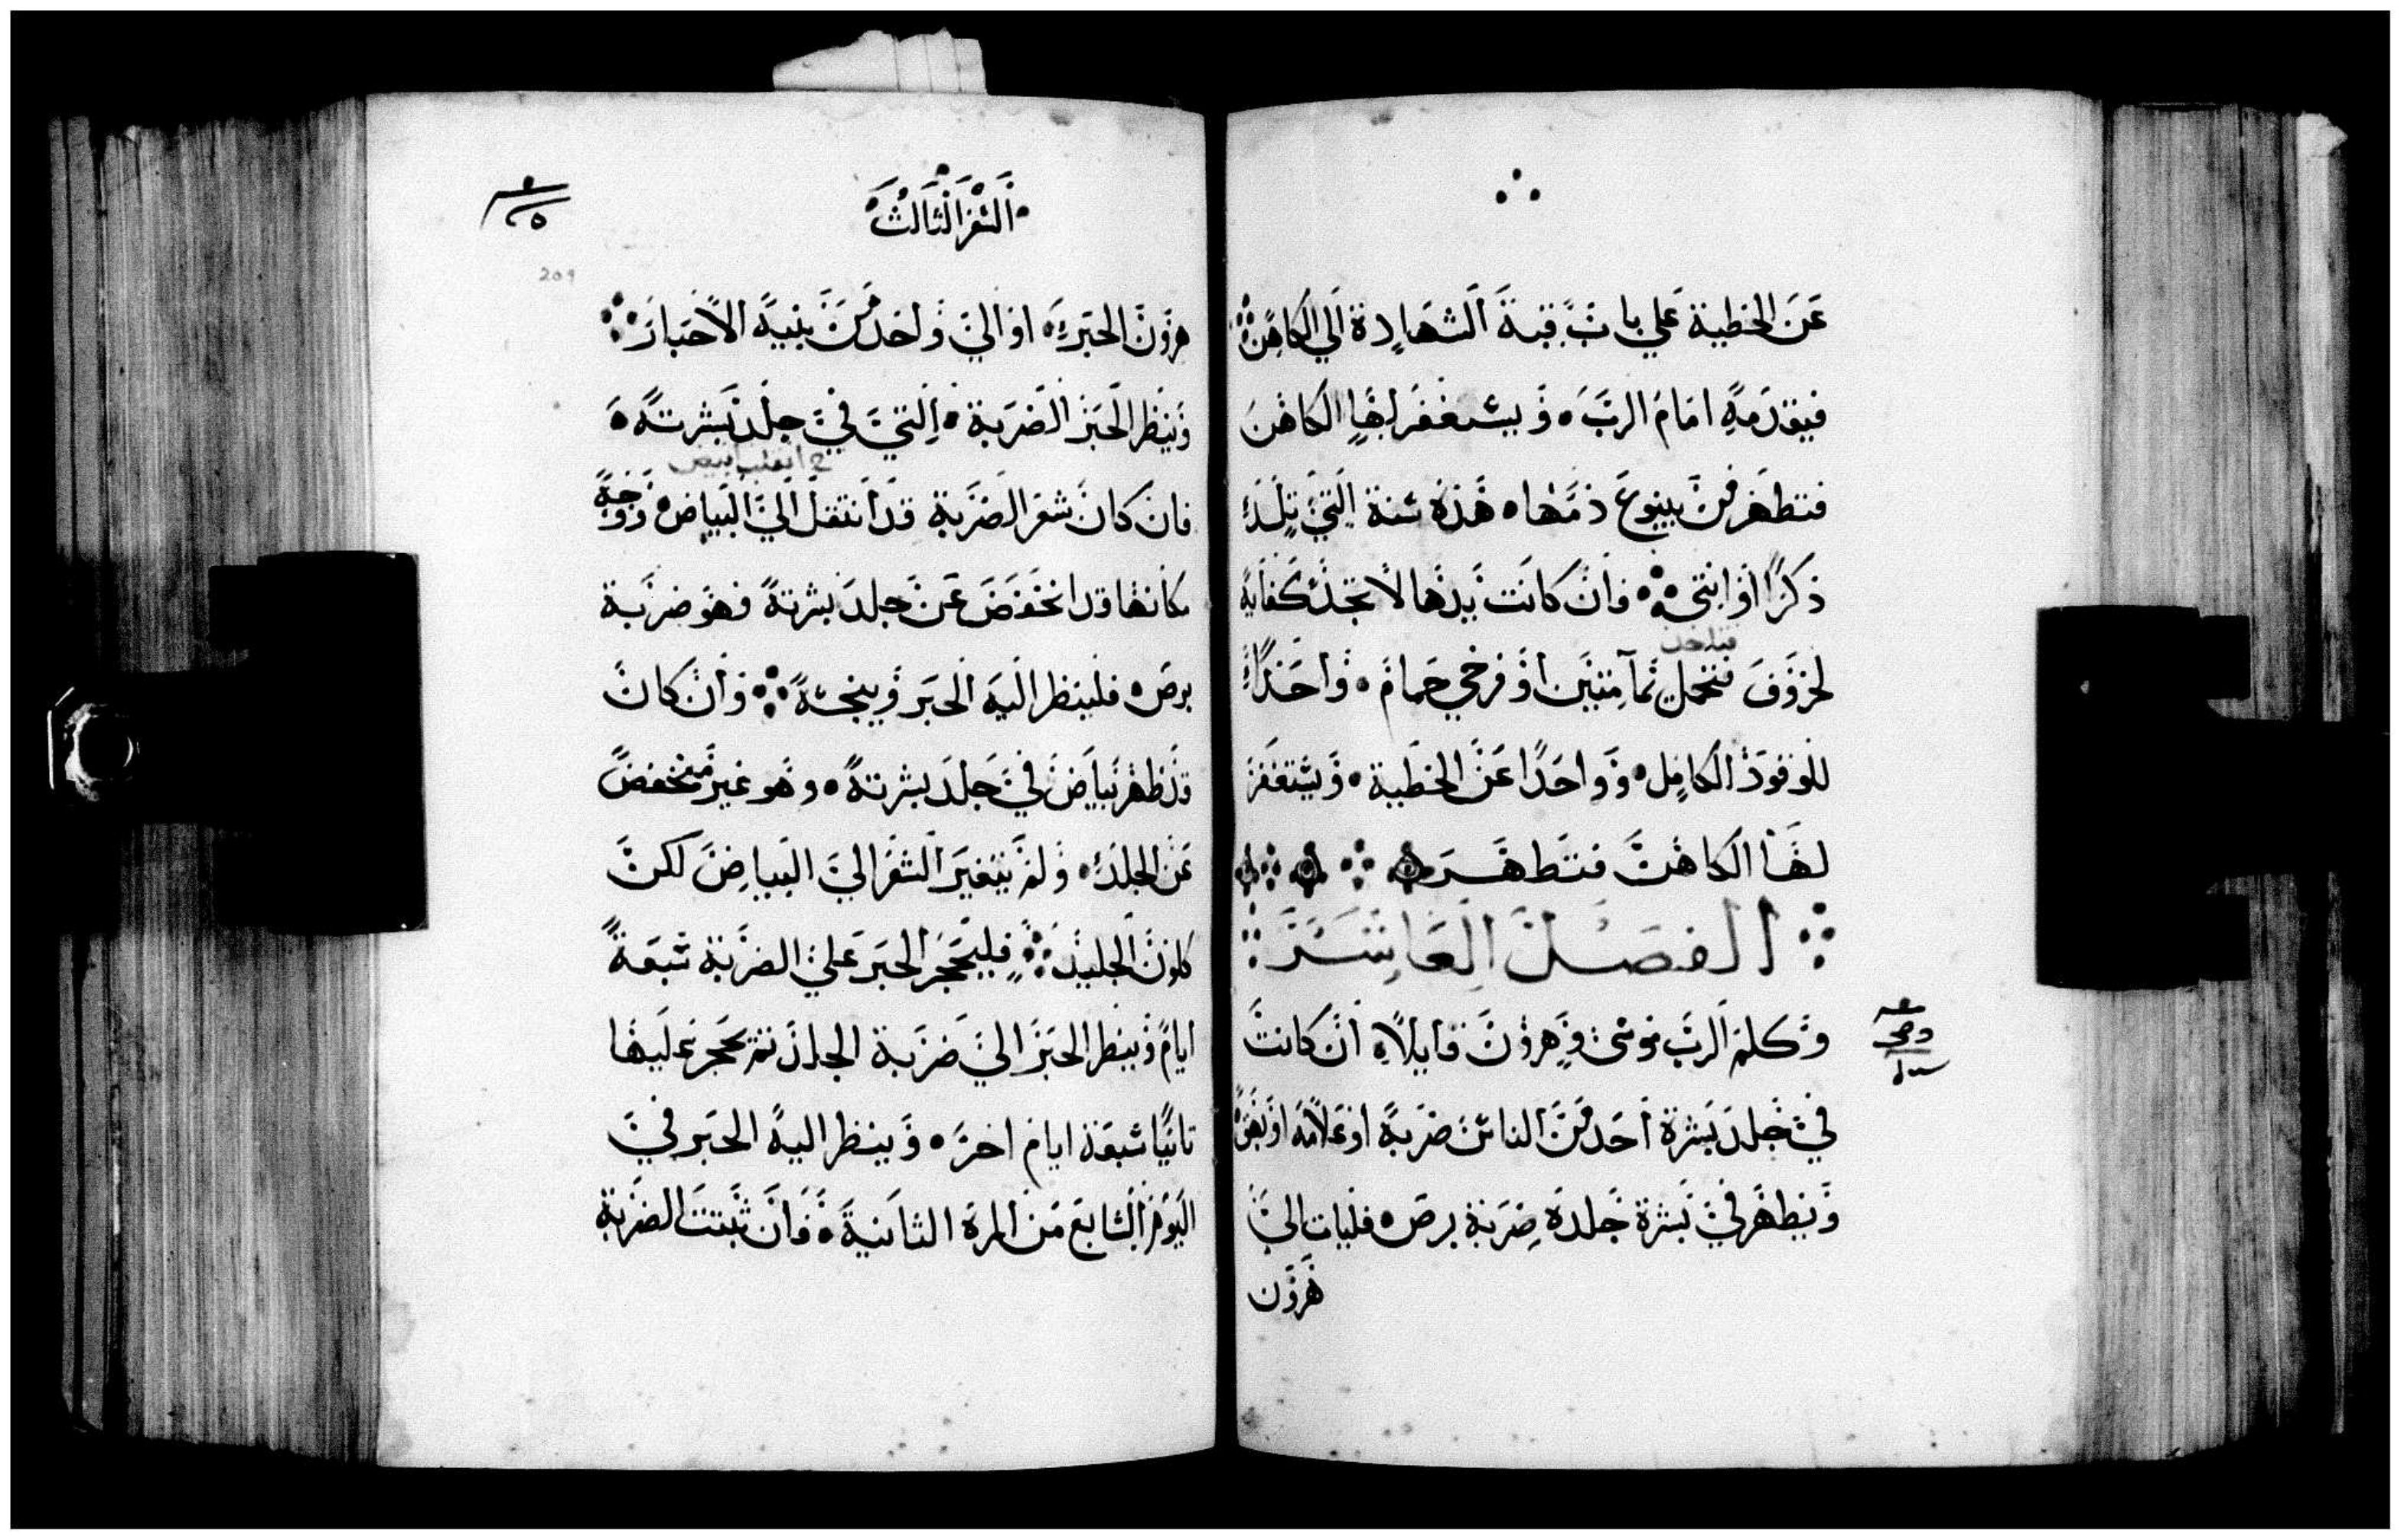 عن الخطية علي باب قبة الشهادة الي الكاهن
فيقدمه امام الرب ويستغفر لها الكاهن
فتطهر من ينبوع دمها هذه سنة التي تلد
ذكرا او انثي وان كانت يدها لا تجد كفاية
لخروف فتحمل يمامتين او فرخي حمام واحدا
فتاخذ
للوقود الكامل وواحدا عن الخطية ويستغفر
لها الكاهن فتطهر
الفصل العاشر
وكلم الرب موسى وهرون قايلا ان كانت
في جلد بشرة احد من الناس ضربة او علامة او بهق
ويظهر في بشرة جلده ضربة برص فليات الي
هرون
السفر الثالث
209
هرون الحبر او الي واحد من بنيه الاحبار
وينظر الحبر الضربة التي في جلد بشرته
انقلب ابيض
فان كان شعر الضربة قد انتقل الي البياض ووجه
مكانها قد انخفض عن جلد بشرته فهو ضربة
برص فلينظر اليه الحبر وينجسه وان كان
قد ظهر بياض في جلد بشرته وهو غير منخفض
عن الجلد ولم يتغير الشعر الي البياض لكن
كلون الجليد فليحجر الحبر علي الضربة سبعة
ايام وينظر الحبر الي ضربة الجلد ثم يحجر عليها
ثانيا سبعة ايام اخر وينظر اليه الحبر في
اليوم السابع من المرة الثانية فان ثبتت الضربة